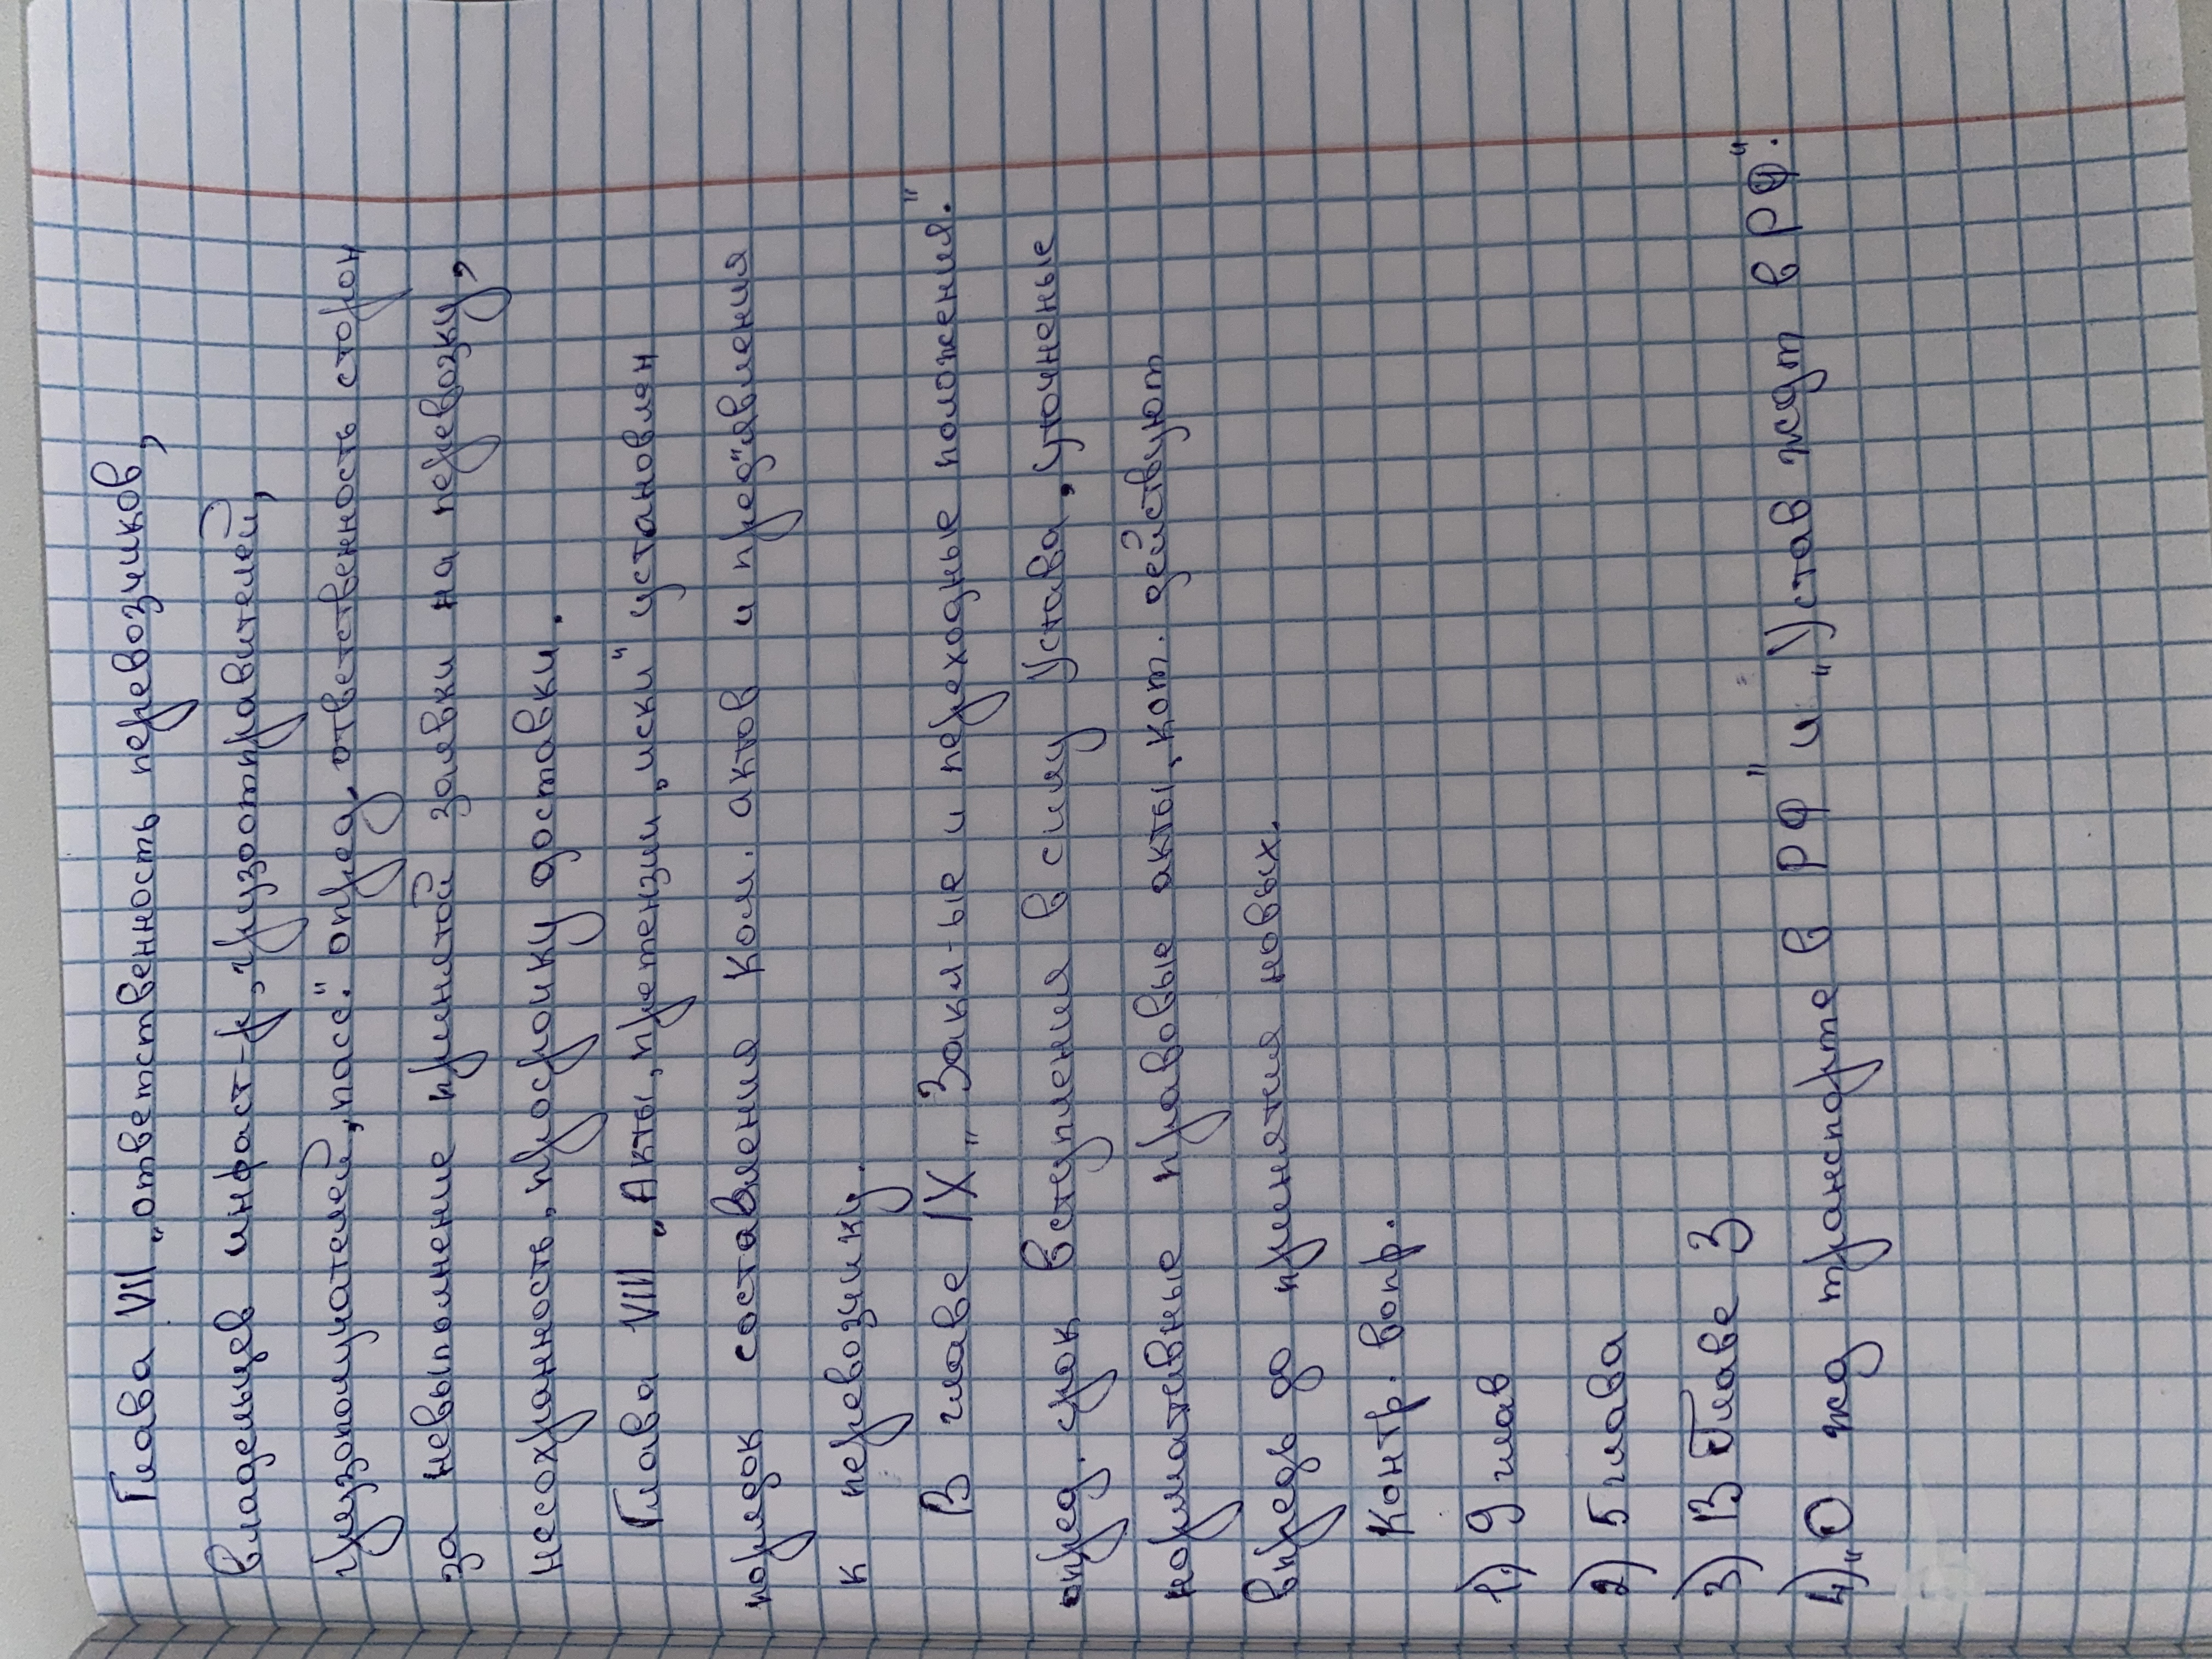 Глава VII „ответственность перевозчиков,
владельцев инфраст-р, грузоотправителей,
грузополучателей, пасс." опред. ответственность сторон
за невыполнение принятой заявки на перевозку,
несохранность, просрочку доставки.
Глава VIII „Акты, претензии, иски" установлен
порядок составления Ком. актов и пред"явления
к перевозчику.
В главе IX „Закл-ые и переходные положения."
опред. срок вступления в силу Устава, уточненые
нормативные правовые акты, кот. действуют
впредь до принятия новых.
Контр. вопр.
1) 9 глав
2) 5 глава
3) В Главе 3
4) „О жд транспорте в РФ" и „Устав ждт в РФ".